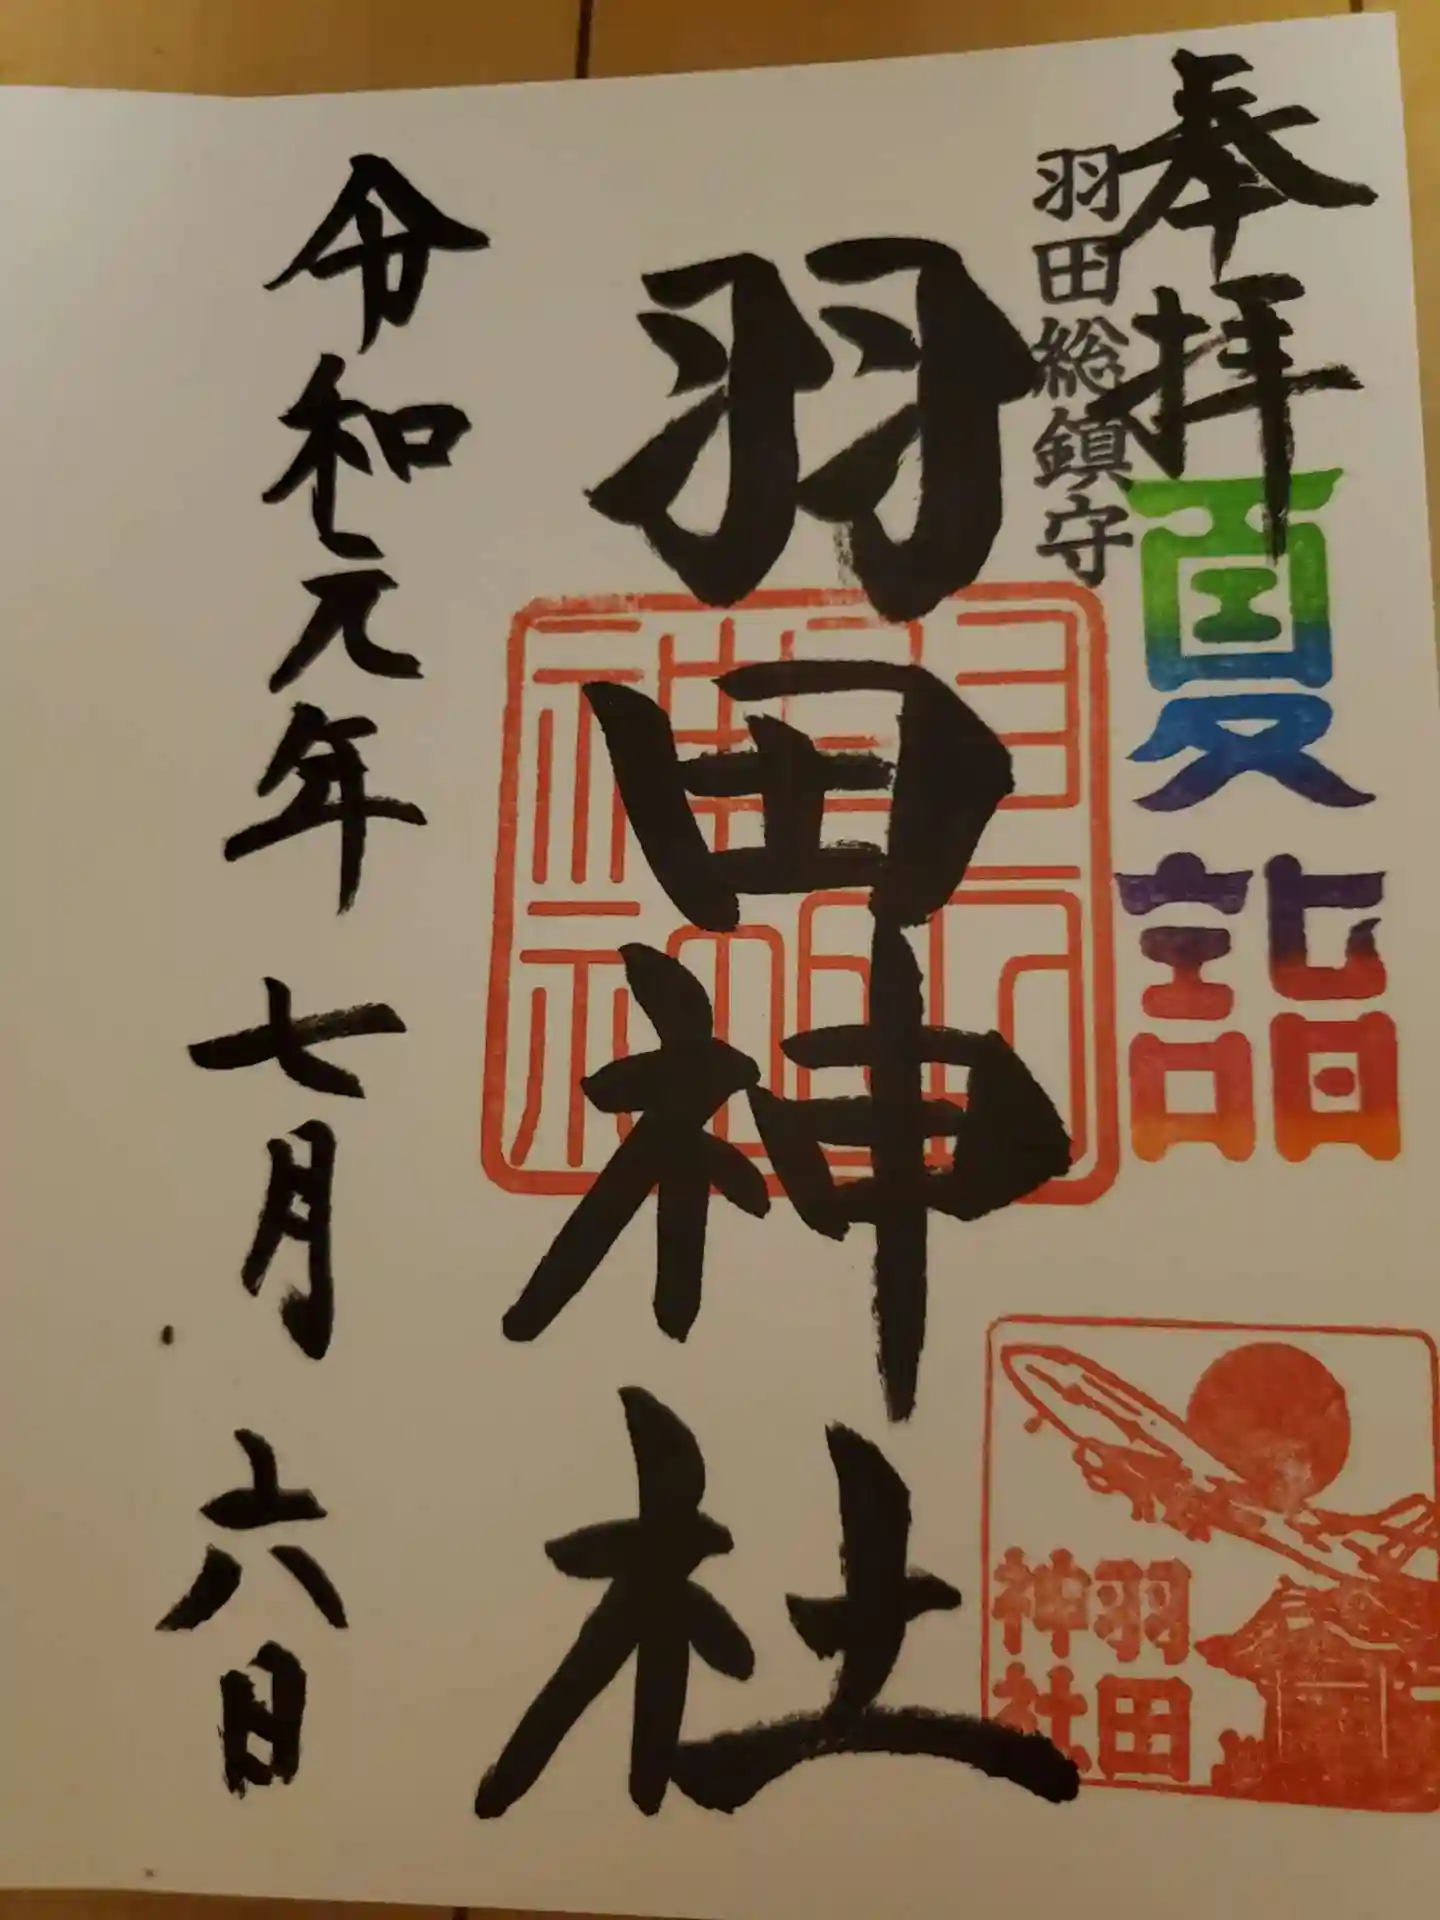 奉拝
夏詣
羽田総鎮守
羽田神社
令和元年 七月 六日
羽田神社
羽田
神社